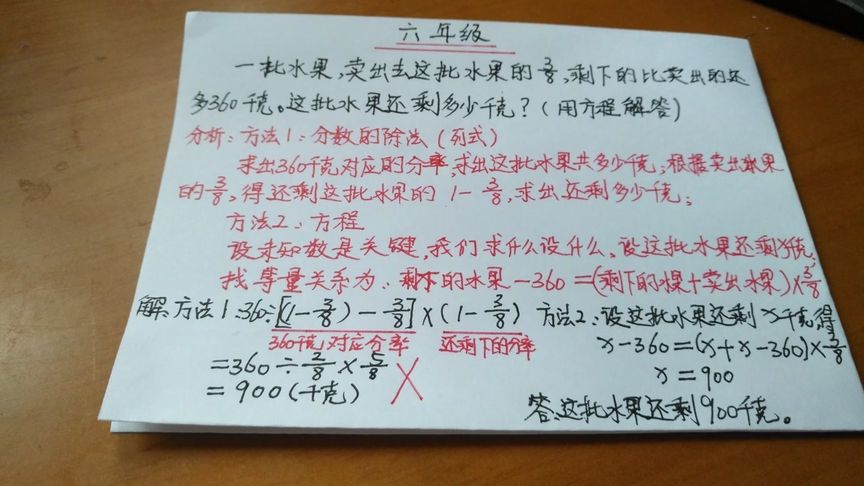 六年级
一批水果,卖出去这批水果的3/8,剩下的比卖出的还
多360千克。这批水果还剩多少千克?(用方程解答)
分析:方法1:分数的除法(列式)
求出360千克对应的分率,求出这批水果共多少千克,根据卖出水果
的3/8,得还剩这批水果的1-3/8,求出还剩多少千克;
方法2:方程
设未知数是关键,我们求什么设什么,设这批水果还剩x千克,
找等量关系为:剩下的水果-360=(剩下的水果+卖出水果)×3/8
解:方法1:360÷[(1-3/8)-3/8]×(1-3/8)
360千克对应分率 还剩下的分率
=360÷2/8×5/8
=900(千克)
方法2:设这批水果还剩x千克,得
x-360=(x+x-360)×3/8
x=900
答:这批水果还剩900千克。